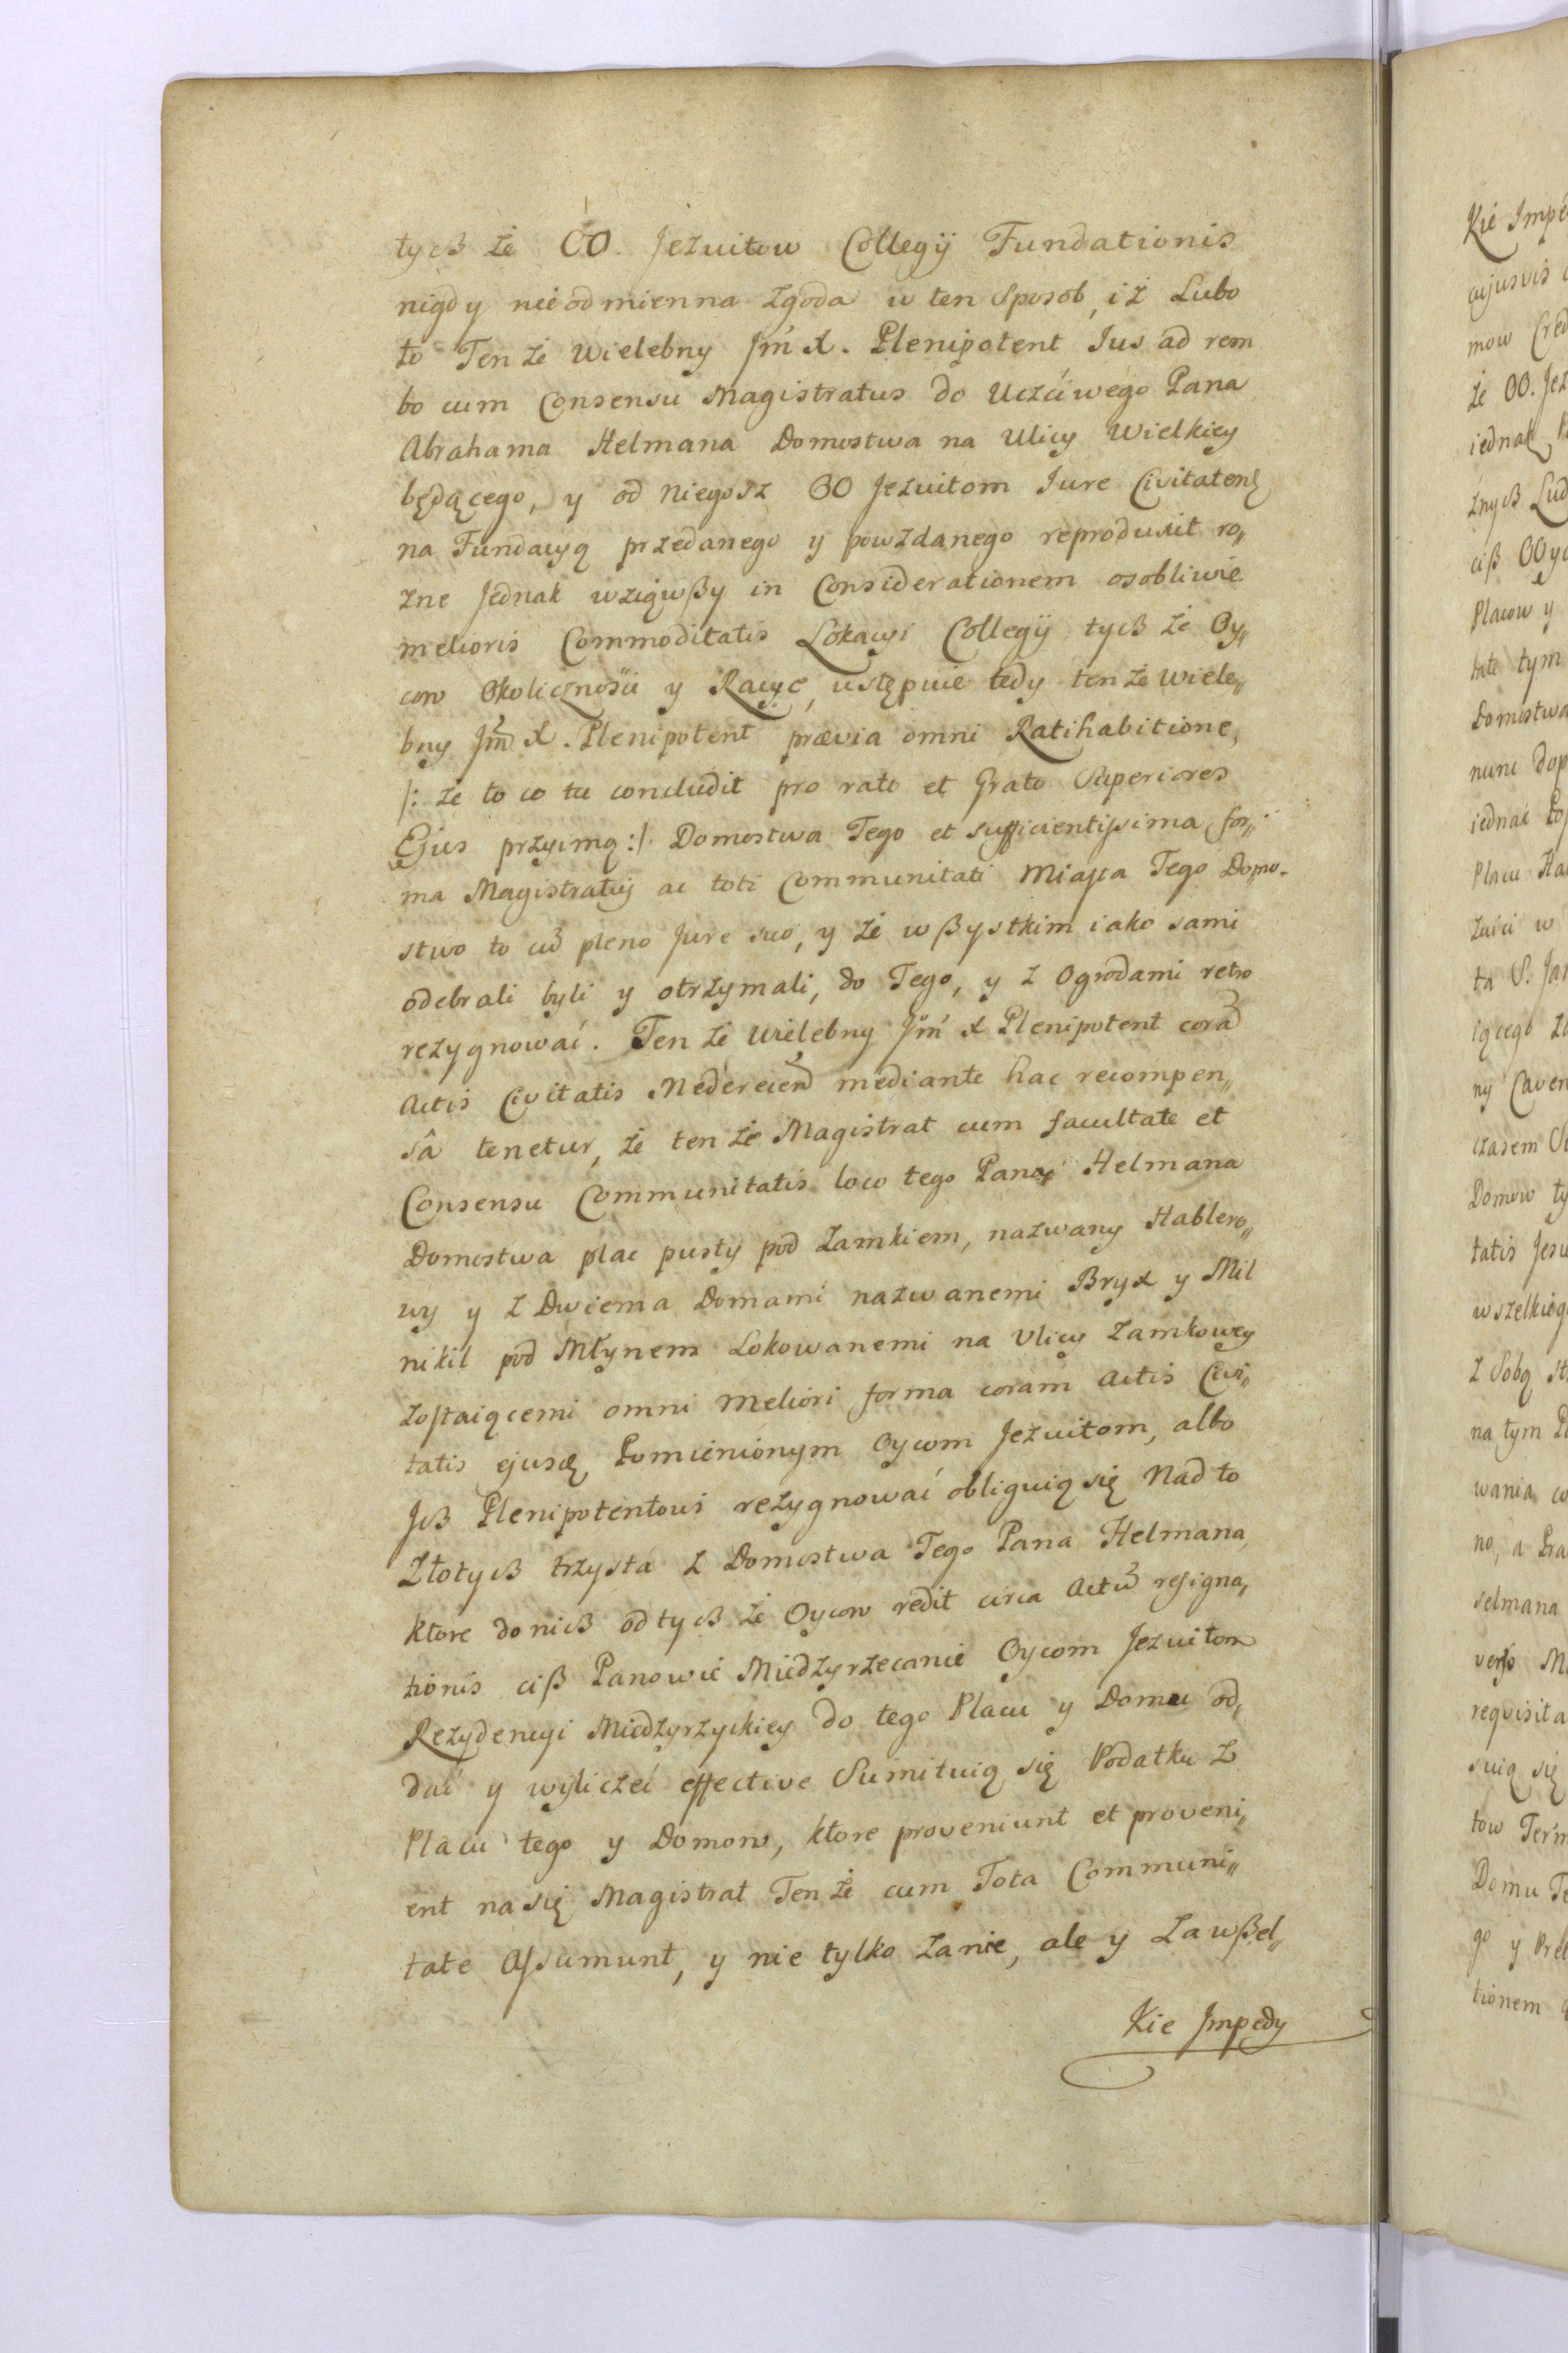 tych że OO. Jezuitow Collegij Fundationis
nigdy nieodmienna zgoda w ten Sposob, iż Lubo
to Ten że Wielebny Jm̃ X. Plenipotent Jus ad rem
bo cum Consensu Magistratus do Uczciwego Pana
Abrahama Helmana Domostwa na Ulicy Wielkiey
będącego, y od niegosz OO Jezuitom Jure
na Fundacyą przedanego y powzdanego reproduxit ro„
zne Jednak wziąwßy in Considerationem osobliwie
melioris Commoditatis Lokacyi Collegij tych że Oy„
cow Okolicznosci y Racye, ustępuie tedy ten że Wiele„
bny Jm̃ X. Plenipotent prævia omni Ratihabitione,
/: że to co tu concludit pro rato et Grato Superiores
Ejus przyimą :/ Domostwa Tego et sufficientissima for„
ma Magistratuj ac toti Communitati Miasta Tego Domo-
stwo to cũ pleno Jure suo, y że wßystkim iako sami
odebrali byli y otrzymali, do Tego, y z Ogrodami retro
rezygnować. Ten że Wielebny Jm̃ X Plenipotent corã
Actis Civitatis mediante hac recompen„
sâ tenetur, że ten że Magistrat cum facultate et
Consensu Communitatis loco tego Pana Helmana
Domostwa plac pusty pod Zamkiem, nazwany Hablero„
wy y z Dwiema Domami nazwanemi Bryx y Mil
nikil pod Młynem Lokowanemi na Ulicy Zamkowey
zostaiącemi omni meliori forma coram Actis Civi„
tatis ejusdẽ, Pomienionym Oycom Jezuitom, albo
Jch Plenipotentowi rezygnować obliguią się Nad to
Złotych trzysta z Domostwa Tego Pana Helmana,
ktore do nich od tych że Oycow redit circa Actũ resigna„
tionis ciß Panowie Miedzyrzecanie Oycom Jezuitom
Rezydencyi Miedzyrzyckiey do tego Placu y Domu od„
dać y wyliczeć effective Sumituią się Podatku z
Placu tego y Domow, ktore proveniunt et proveni„
ent na się Magistrat Ten że cum Tota Communi„
tate Assumunt, y nie tylko zanie, ale y zawßel„
Kie Jmpedy
Kie Impe
cujusvis
mow Cred
że OO. Jez
iednak
żnych Lud
ciß OOyc
Placow y
tate tym
Domostwa
nunc dop
iednac
Placu Ha
w
ta S. Jan
iącego
ny Caven
czasem
Domow ty
tatis Jesu
wszelkieg
z Sobą
na tym
wania co
no, a Pra
selmana
requisita
suią się
tow Term
Domu Te
go y
tionem